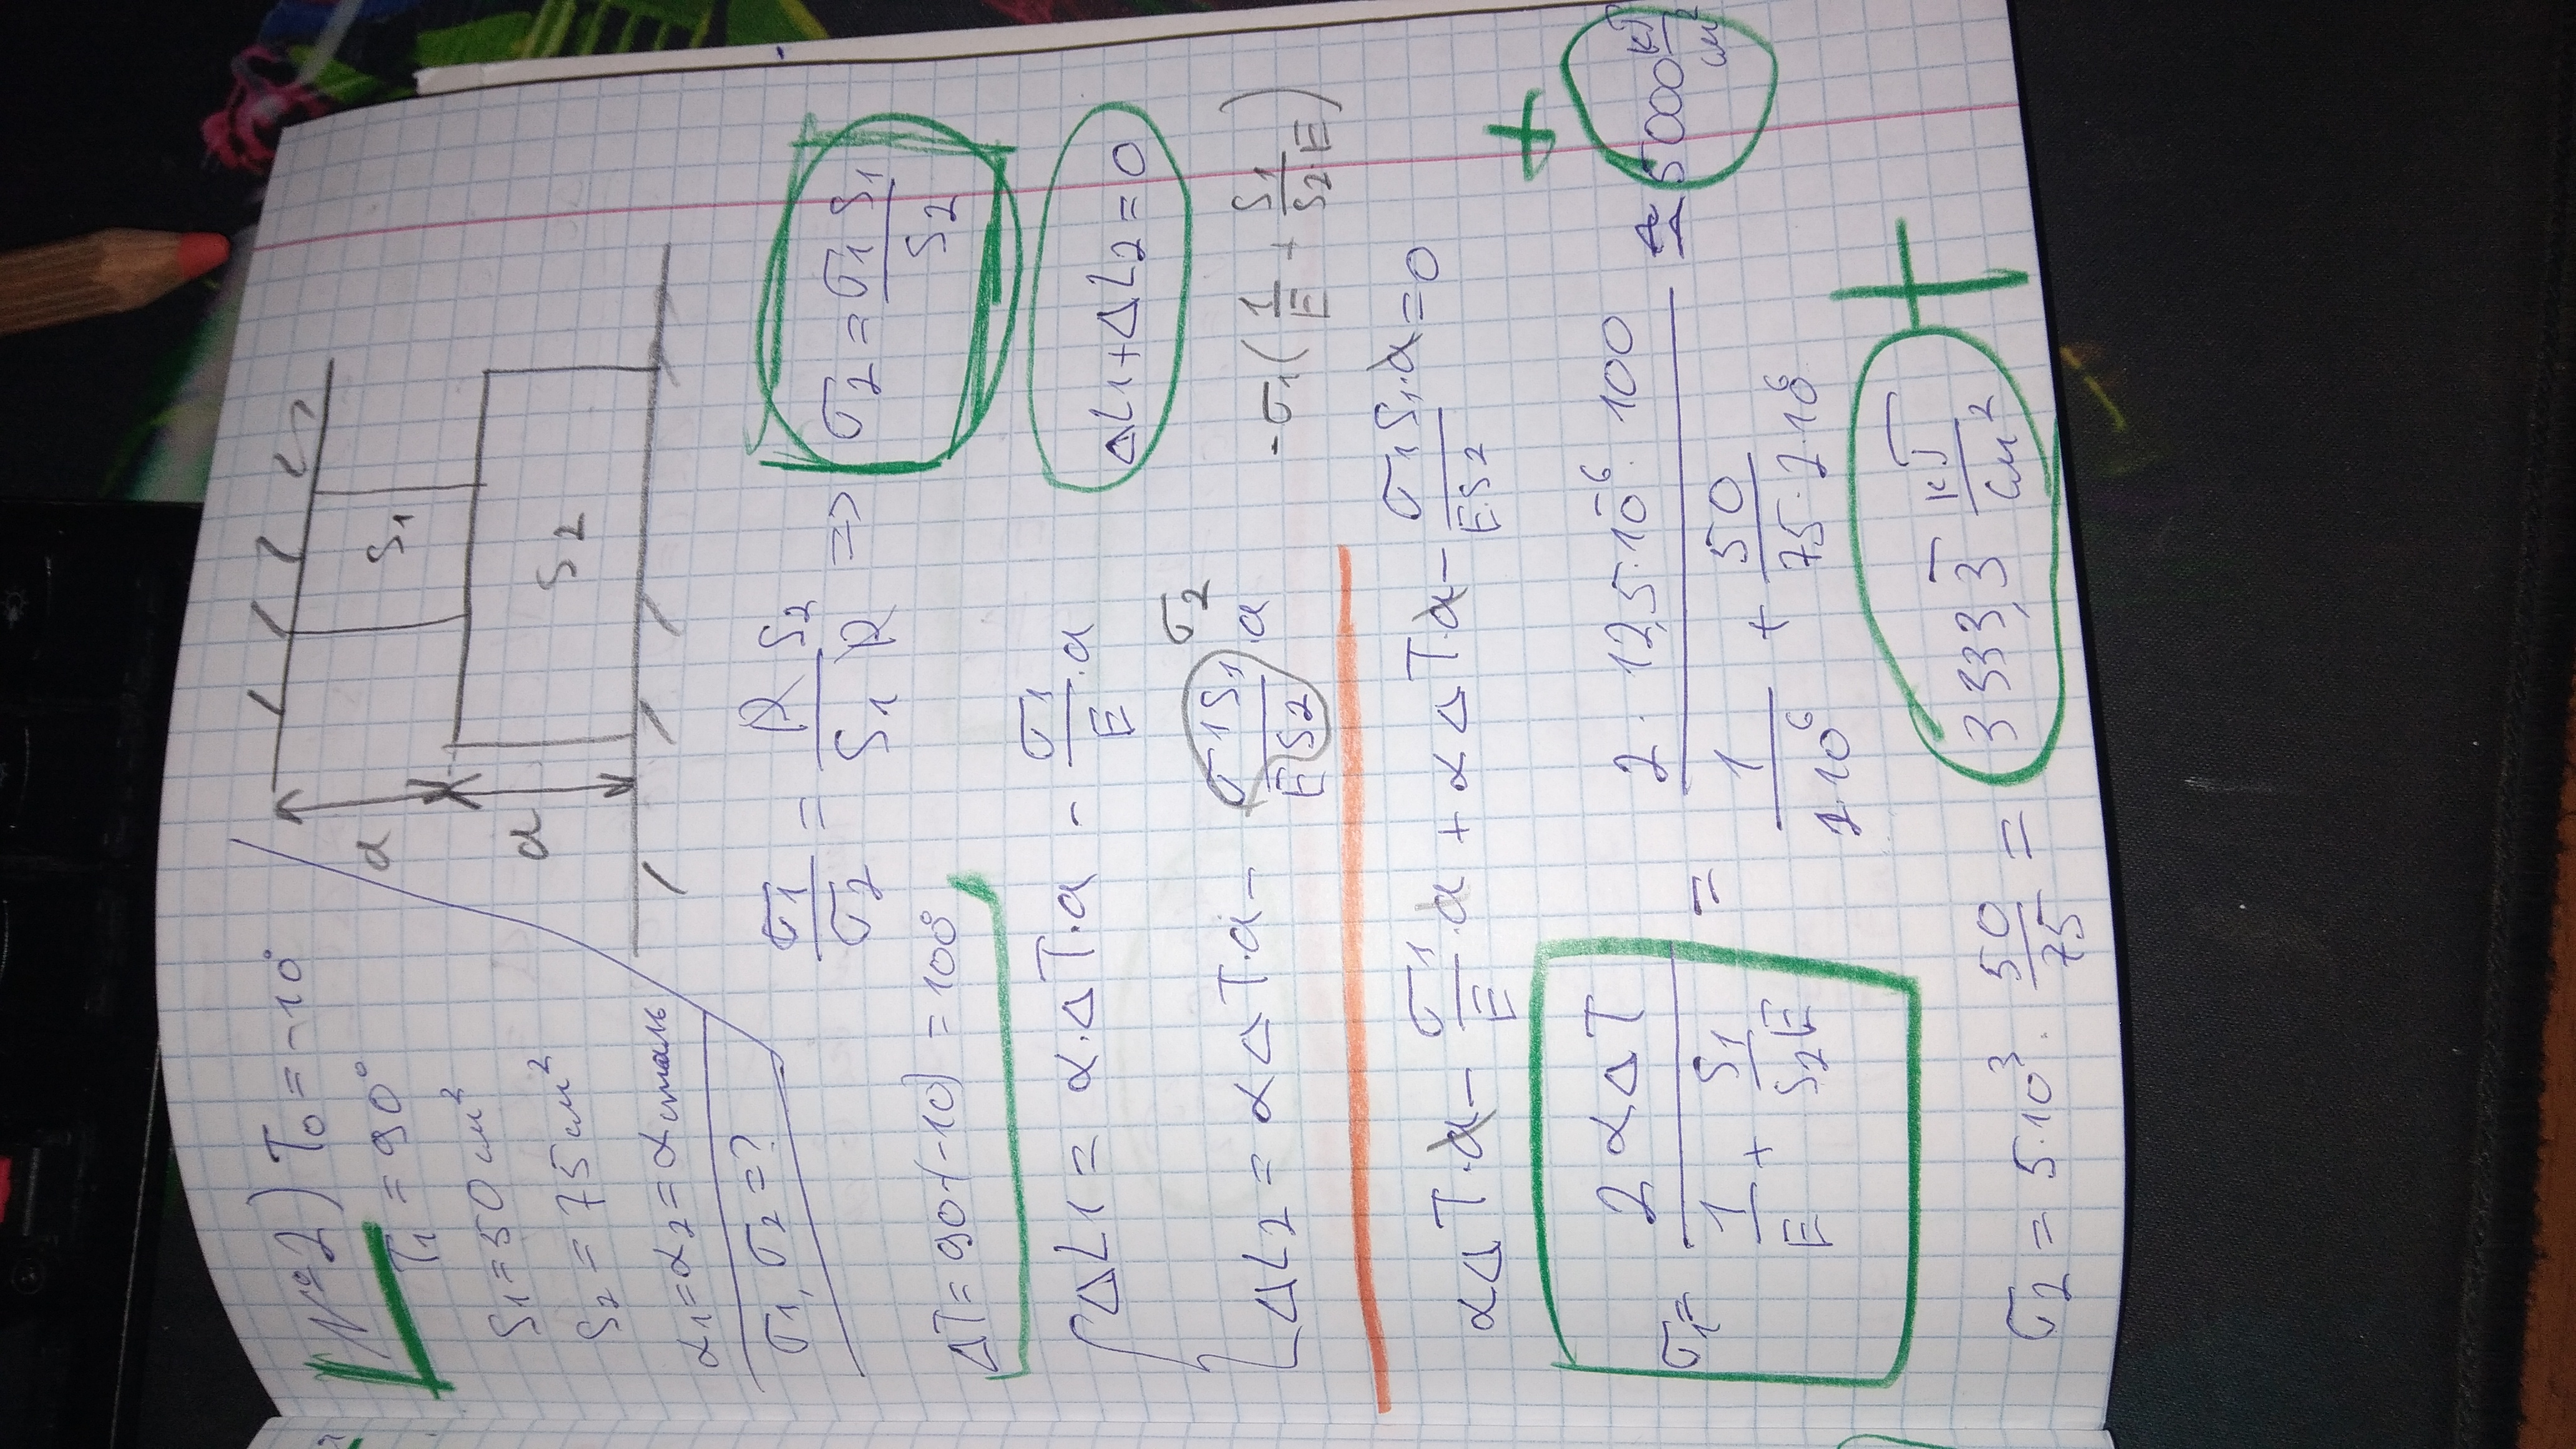 №2) T₀ = -10°
T₁ = 90°
S₁ = 50 см²
S₂ = 75 см²
α₁ = α₂ = α сталь
σ₁, σ₂ = ?
a
S₁
a
S₂
σ₁/σ₂ = R S₂ / S₁ R => σ₂ = σ₁ S₁ / S₂
ΔT = 90-(-10) = 100°
ΔL1 = α·ΔT·a - σ₁/E ·a
ΔL₁ + ΔL₂ = 0
ΔL₂ = αΔT·a - σ1S₁/ES₂ ·a σ₂
-σ₁(1/E + S₁/S₂·E)
αΔT·a - σ1/E ·a + αΔT·a - σ₁S₁·a/E·S₂ = 0
σ₁ = 2αΔT / (1/E + S₁/S₂E) = 2·12,5·10⁻⁶·100 / (1/2·10⁶ + 50/75·2·10⁶) ≈ 5000 кГ/см² +
σ₂ = 5·10³ · 50/75 = 3333,3̅ кГ/см² +